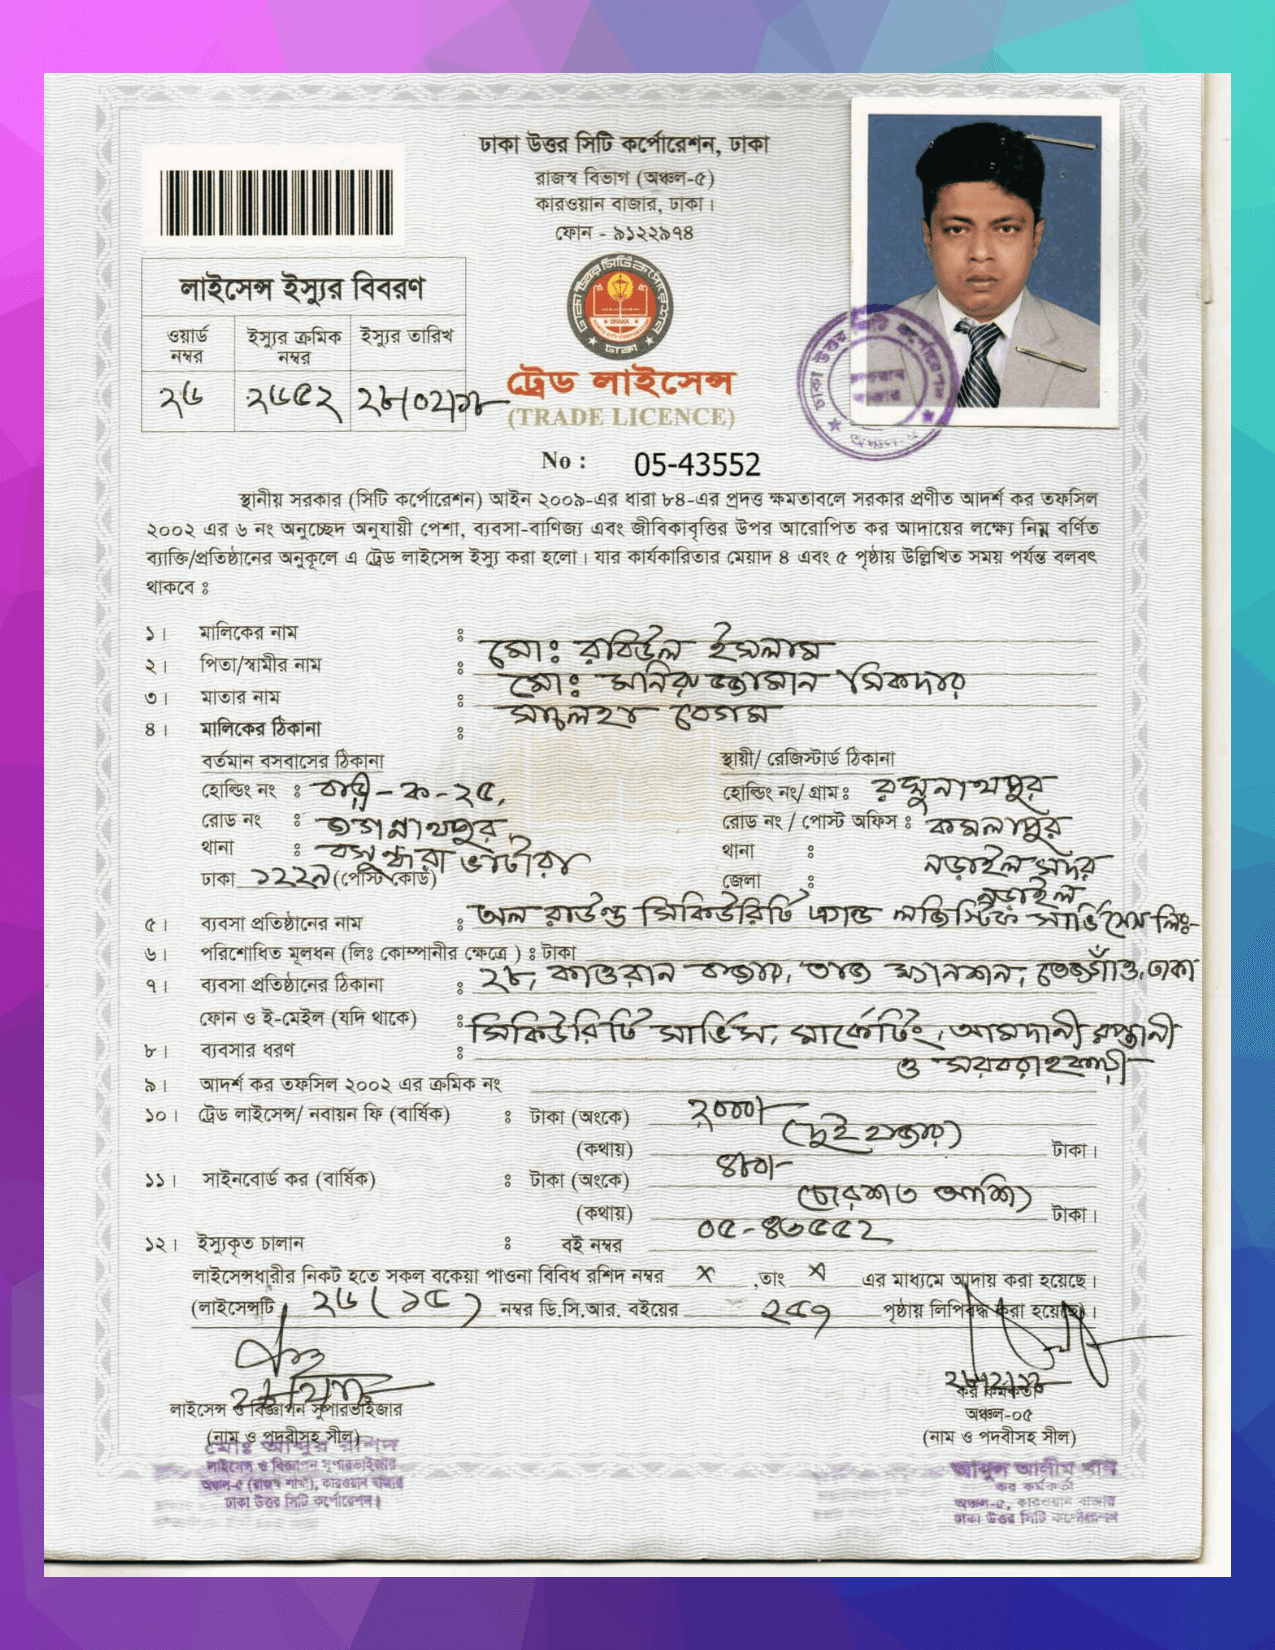 ঢাকা উত্তর সিটি কর্পোরেশন, ঢাকা
রাজস্ব বিভাগ (অঞ্চল-৫)
কারওয়ান বাজার, ঢাকা।
ফোন - ৯১২২৯৭৪
লাইসেন্স ইস্যুর বিবরণ
ওয়ার্ড নম্বর ইস্যুর ক্রমিক নম্বর ইস্যুর তারিখ
২৬ ২৬৫২ ২৮/০২/১৮
ট্রেড লাইসেন্স
(TRADE LICENCE)
No : 05-43552
স্থানীয় সরকার (সিটি কর্পোরেশন) আইন ২০০৯-এর ধারা ৮৪-এর প্রদত্ত ক্ষমতাবলে সরকার প্রণীত আদর্শ কর তফসিল
২০০২ এর ৬ নং অনুচ্ছেদ অনুযায়ী পেশা, ব্যবসা-বাণিজ্য এবং জীবিকাবৃত্তির উপর আরোপিত কর আদায়ের লক্ষ্যে নিম্ন বর্ণিত
ব্যাক্তি/প্রতিষ্ঠানের অনুকূলে এ ট্রেড লাইসেন্স ইস্যু করা হলো। যার কার্যকারিতার মেয়াদ ৪ এবং ৫ পৃষ্ঠায় উল্লিখিত সময় পর্যন্ত বলবৎ
থাকবে ঃ
১। মালিকের নাম ঃ মোঃ রবিউল ইসলাম
২। পিতা/স্বামীর নাম ঃ মোঃ মনিরুজ্জামান সিকদার
৩। মাতার নাম ঃ সালেহা বেগম
৪। মালিকের ঠিকানা ঃ
বর্তমান বসবাসের ঠিকানা স্থায়ী/ রেজিস্টার্ড ঠিকানা
হোল্ডিং নং ঃ বাড়ী-ক-২৫, হোল্ডিং নং/ গ্রাম ঃ রঘুনাথপুর
রোড নং ঃ জগন্নাথপুর, রোড নং / পোস্ট অফিস ঃ কমলাপুর
থানা ঃ বসুন্ধরা ভাটারা থানা ঃ নড়াইল সদর
ঢাকা ১২২৯ (পোস্ট কোড) জেলা ঃ নড়াইল
৫। ব্যবসা প্রতিষ্ঠানের নাম ঃ অল রাউন্ড সিকিউরিটি এ্যান্ড লজিস্টিক সার্ভিসেস লিঃ
৬। পরিশোধিত মূলধন (লিঃ কোম্পানীর ক্ষেত্রে ) ঃ টাকা
৭। ব্যবসা প্রতিষ্ঠানের ঠিকানা ঃ ২৮, কাওরান বাজার, তাজ ম্যানশন, তেজগাঁও, ঢাকা
ফোন ও ই-মেইল (যদি থাকে) ঃ
৮। ব্যবসার ধরণ ঃ সিকিউরিটি সার্ভিস, মার্কেটিং, আমদানী রপ্তানী
ও সরবরাহকারী
৯। আদর্শ কর তফসিল ২০০২ এর ক্রমিক নং
১০। ট্রেড লাইসেন্স/ নবায়ন ফি (বার্ষিক) ঃ টাকা (অংকে) ২০০০/-
(কথায়) (দুই হাজার) টাকা।
১১। সাইনবোর্ড কর (বার্ষিক) ঃ টাকা (অংকে) ৪৮০/-
(কথায়) (চারশত আশি) টাকা।
১২। ইস্যুকৃত চালান ঃ বই নম্বর ০৫-৪৩৫৫২
লাইসেন্সধারীর নিকট হতে সকল বকেয়া পাওনা বিবিধ রশিদ নম্বর x ,তাং x এর মাধ্যমে আদায় করা হয়েছে।
(লাইসেন্সটি ২৬ (১৫) নম্বর ডি.সি.আর. বইয়ের ২৫৭ পৃষ্ঠায় লিপিবদ্ধ করা হয়েছে)।
লাইসেন্স ও বিজ্ঞাপন সুপারভাইজার
(নাম ও পদবীসহ সীল)
মোঃ আব্দুর রশিদ
লাইসেন্স ও বিজ্ঞাপন সুপারভাইজার
অঞ্চল-৫ (রাজস্ব শাখা), কারওয়ান বাজার
ঢাকা উত্তর সিটি কর্পোরেশন।
কর কর্মকর্তা
অঞ্চল-০৫
(নাম ও পদবীসহ সীল)
আবুল আলীম খান
কর কর্মকর্তা
অঞ্চল-৫, কারওয়ান বাজার
ঢাকা উত্তর সিটি কর্পোরেশন